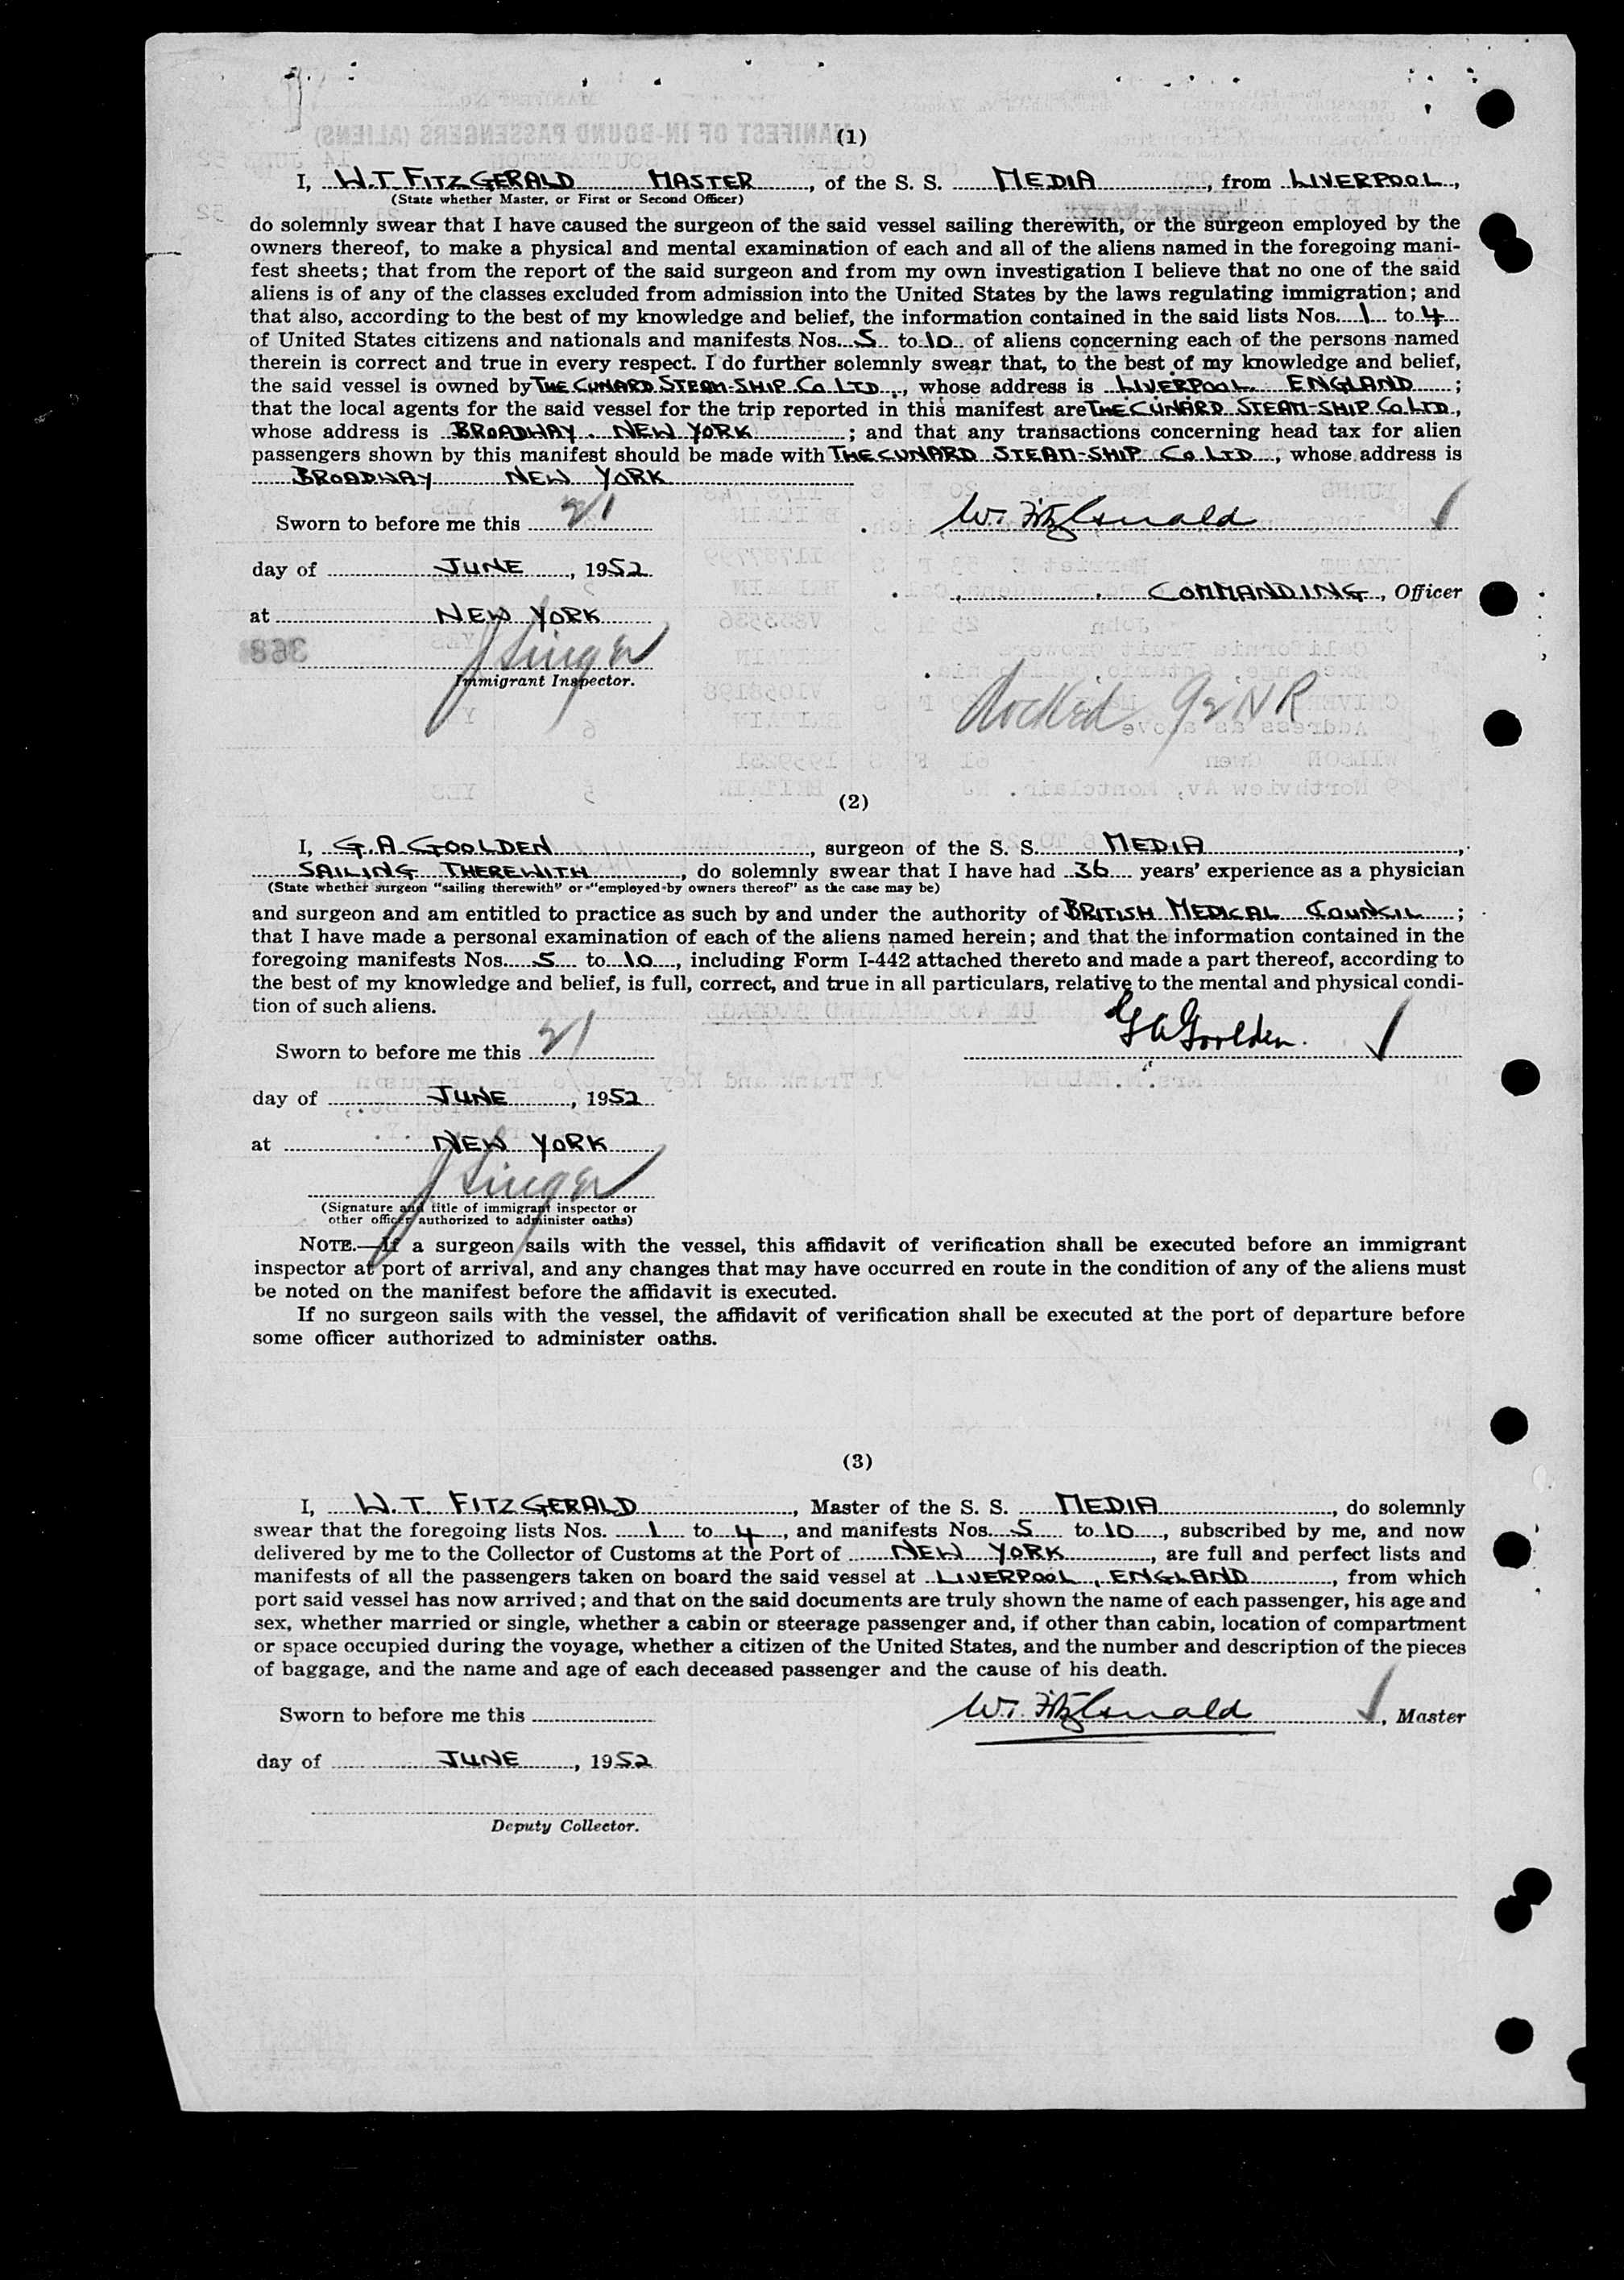 (1)
I, W.T. FITZGERALD MASTER, of the S. S. MEDIA, from LIVERPOOL,
(State whether Master, or First or Second Officer)
do solemnly swear that I have caused the surgeon of the said vessel sailing therewith, or the surgeon employed by the
owners thereof, to make a physical and mental examination of each and all of the aliens named in the foregoing mani-
fest sheets; that from the report of the said surgeon and from my own investigation I believe that no one of the said
aliens is of any of the classes excluded from admission into the United States by the laws regulating immigration; and
that also, according to the best of my knowledge and belief, the information contained in the said lists Nos. 1 to 4
of United States citizens and nationals and manifests Nos. 5 to 10 of aliens concerning each of the persons named
therein is correct and true in every respect. I do further solemnly swear that, to the best of my knowledge and belief,
the said vessel is owned by THE CUNARD STEAM-SHIP CO LTD, whose address is LIVERPOOL ENGLAND;
that the local agents for the said vessel for the trip reported in this manifest are THE CUNARD STEAM-SHIP CO LTD,
whose address is BROADWAY. NEW YORK; and that any transactions concerning head tax for alien
passengers shown by this manifest should be made with THE CUNARD STEAM-SHIP CO LTD, whose address is
BROADWAY NEW YORK
Sworn to before me this 21
W. FitzGerald
day of JUNE, 1952
COMMANDING, Officer
at NEW YORK
J Singer
Immigrant Inspector.
docked 92 NR
(2)
I, G. A GOOLDEN, surgeon of the S. S. MEDIA,
SAILING THEREWITH, do solemnly swear that I have had 36 years' experience as a physician
(State whether surgeon "sailing therewith" or "employed by owners thereof" as the case may be)
and surgeon and am entitled to practice as such by and under the authority of BRITISH MEDICAL COUNCIL;
that I have made a personal examination of each of the aliens named herein; and that the information contained in the
foregoing manifests Nos. 5 to 10, including Form I-442 attached thereto and made a part thereof, according to
the best of my knowledge and belief, is full, correct, and true in all particulars, relative to the mental and physical condi-
tion of such aliens.
Sworn to before me this 21
G A Goolden.
day of JUNE, 1952
at NEW YORK
J Singer
(Signature and title of immigrant inspector or
other officer authorized to administer oaths)
NOTE.—If a surgeon sails with the vessel, this affidavit of verification shall be executed before an immigrant
inspector at port of arrival, and any changes that may have occurred en route in the condition of any of the aliens must
be noted on the manifest before the affidavit is executed.
If no surgeon sails with the vessel, the affidavit of verification shall be executed at the port of departure before
some officer authorized to administer oaths.
(3)
I, W. T. FITZGERALD, Master of the S. S. MEDIA, do solemnly
swear that the foregoing lists Nos. 1 to 4, and manifests Nos. 5 to 10, subscribed by me, and now
delivered by me to the Collector of Customs at the Port of NEW YORK, are full and perfect lists and
manifests of all the passengers taken on board the said vessel at LIVERPOOL, ENGLAND, from which
port said vessel has now arrived; and that on the said documents are truly shown the name of each passenger, his age and
sex, whether married or single, whether a cabin or steerage passenger and, if other than cabin, location of compartment
or space occupied during the voyage, whether a citizen of the United States, and the number and description of the pieces
of baggage, and the name and age of each deceased passenger and the cause of his death.
Sworn to before me this
W. FitzGerald, Master
day of JUNE, 1952
Deputy Collector.